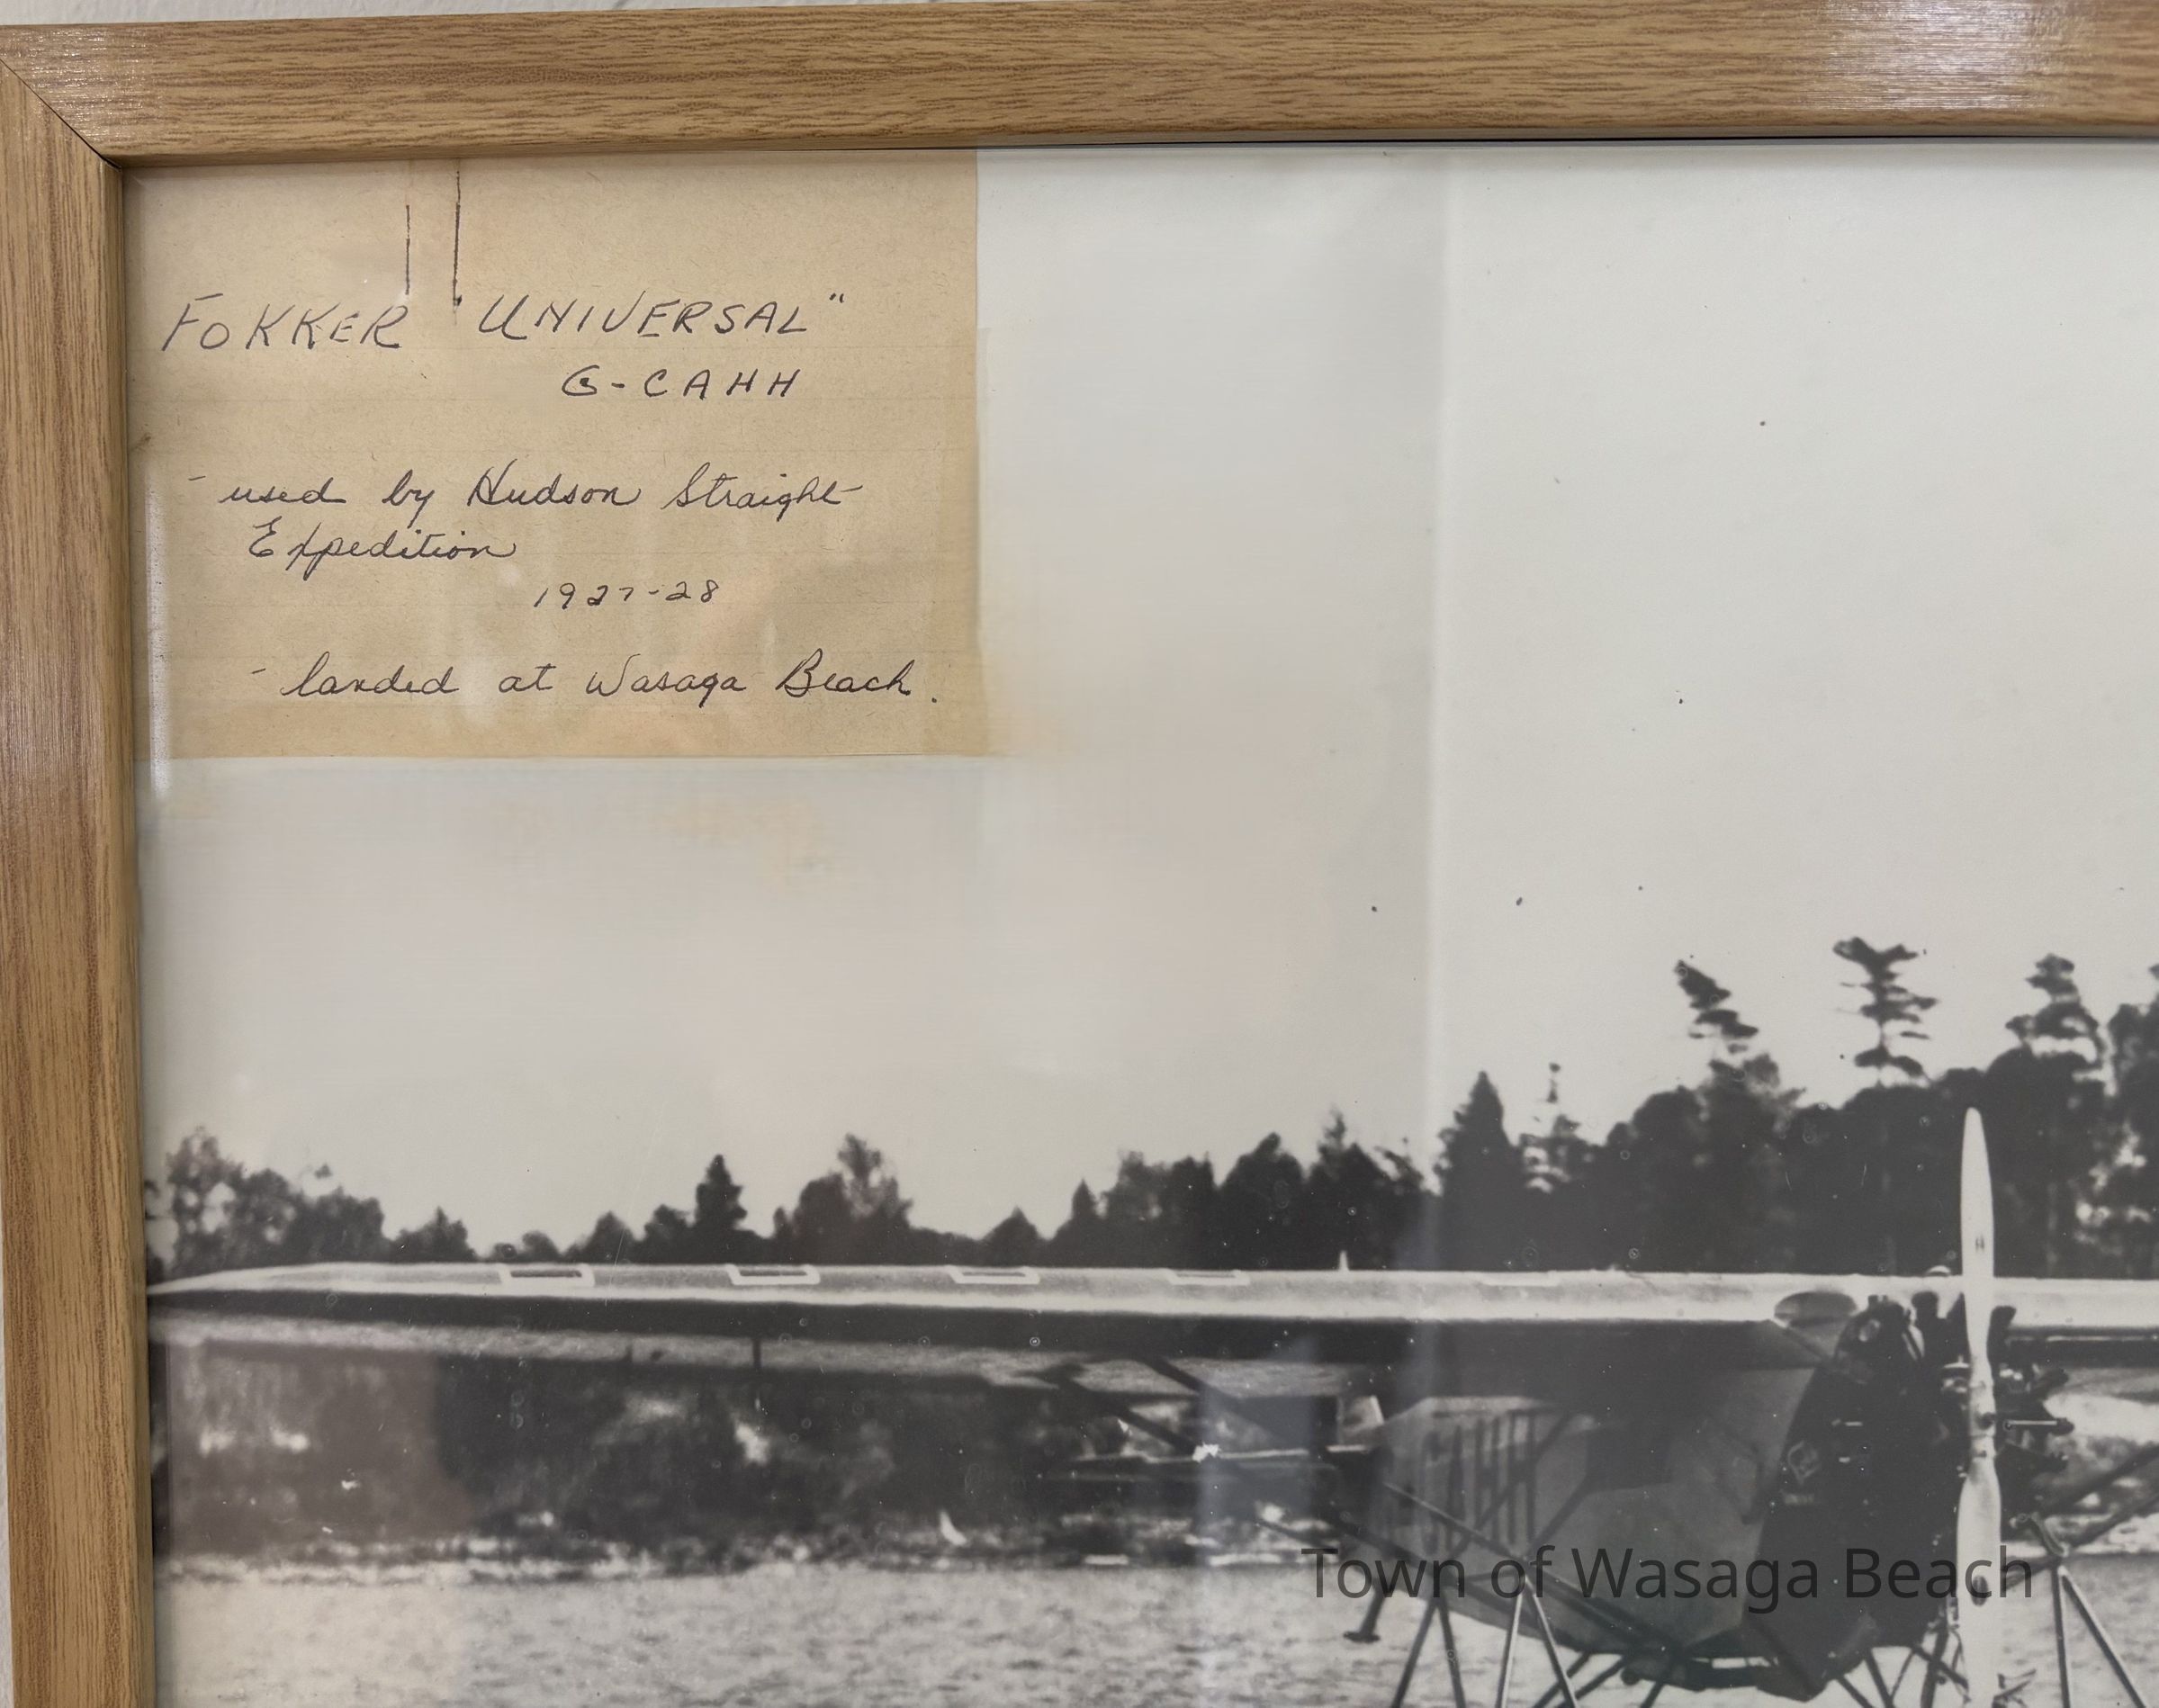 FOKKER "UNIVERSAL"
G-CAHH
- used by Hudson Straight
Expedition
1927-28
- landed at Wasaga Beach.
CAHH
Town of Wasaga Beach